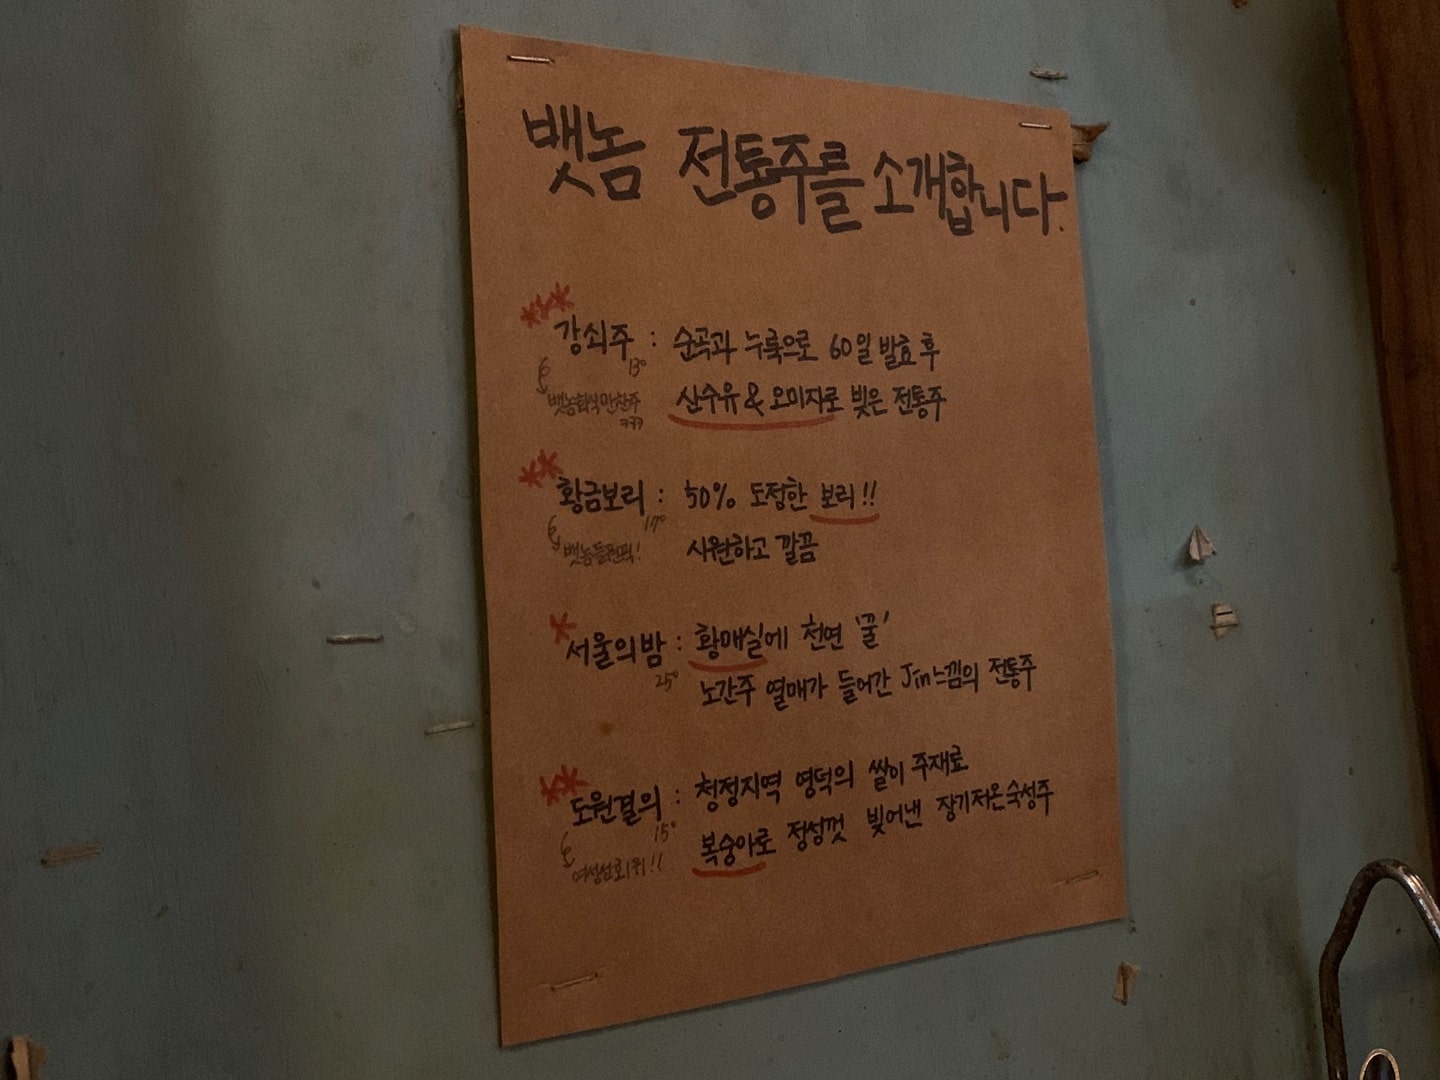 뱃놈 전통주를 소개합니다.
*** 강쇠주 : 순곡과 누룩으로 60일 발효 후
13°
산수유 & 오미자로 빚은 전통주
뱃놈회식만찬주
ㅋㅋㅋ
** 황금보리 : 50% 도정한 보리!!
17°
시원하고 깔끔
뱃놈들원픽!
* 서울의밤 : 황매실에 천연 '꿀'
25°
노간주 열매가 들어간 Jin느낌의 전통주
** 도원결의 : 청정지역 영덕의 쌀이 주재료
15°
복숭아로 정성껏 빚어낸 장기저온숙성주
여성선호1위!!